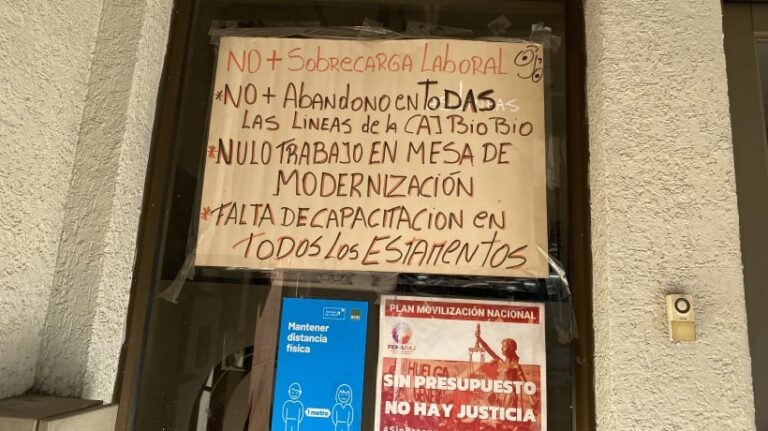 NO + SOBRECARGA LABORAL
*NO + ABANDONO EN TODAS
LAS LINEAS de la CAJ BIO BIO
*NULO TRABAJO EN MESA DE
MODERNIZACIÓN
*FALTA DE CAPACITACION en
TODOS LOS ESTAMENTOS
Mantener
distancia
física
1 metro
PLAN MOVILIZACIÓN NACIONAL
HUELGA
SIN PRESUPUESTO
NO HAY JUSTICIA